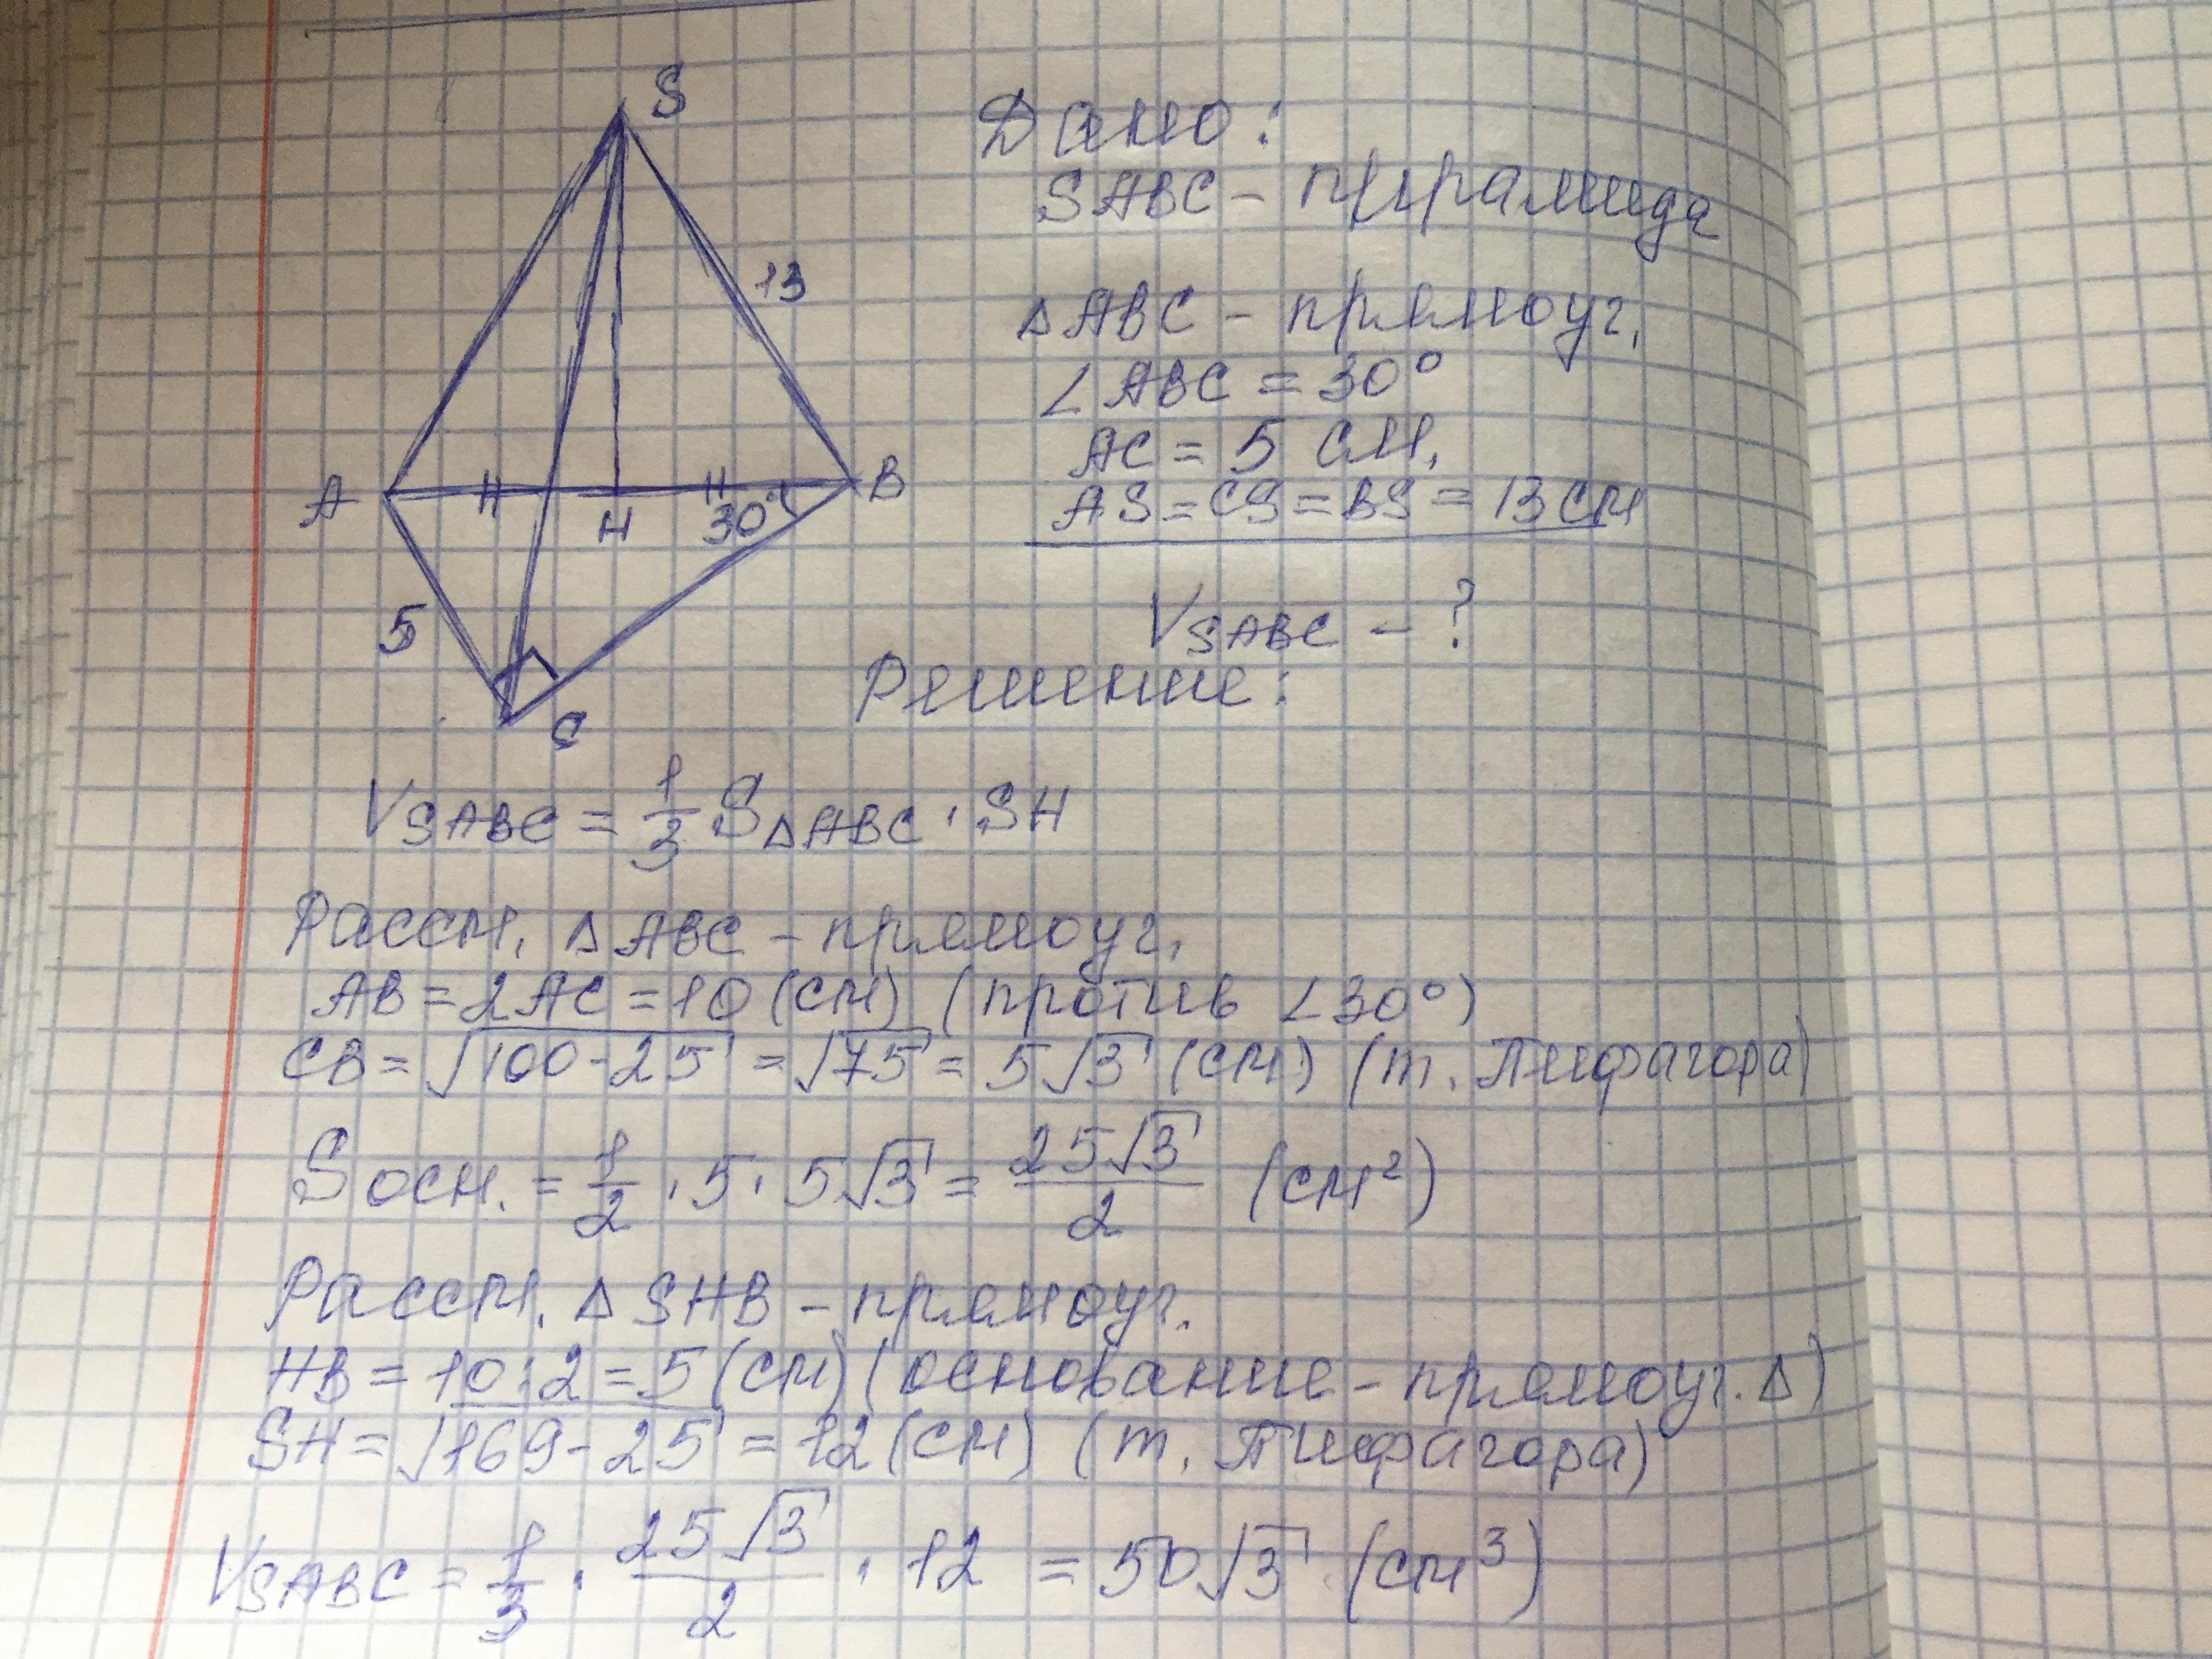 S
13
A
H
30°
B
5
C
Дано:
SABC - пирамида
△ABC - прямоуг,
∠ABC = 30°
AC = 5 см,
AS = CS = BS = 13 см
V SABC - ?
Решение:
V SABC = 1/3 S△ABC · SH
Рассм. △ABC - прямоуг.
AB = 2AC = 10 (см) (против ∠30°)
CB = √100-25 = √75 = 5√3 (см) (т. Пифагора)
Sосн. = 1/2 · 5 · 5√3 = 25√3/2 (см²)
Рассм. △SHB - прямоуг.
HB = 10:2 = 5 (см) (основание - прямоуг. △)
SH = √169-25 = 12 (см) (т. Пифагора)
V SABC = 1/3 · 25√3/2 · 12 = 50√3 (см³)